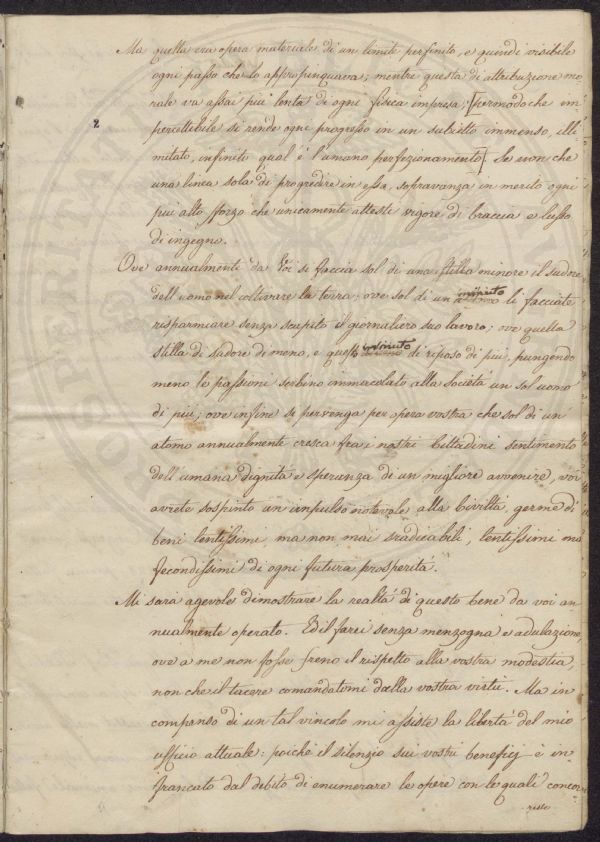 Ma quella era opera materiale di un limite perfinito, e quindi visibile
ogni passo che lo appropinquava; mentre questa di attribuzione mo
rale va assai più lenta di ogni fisica impresa; [permodo che im
2
percettibile si rende ogni progresso in un subietto immenso, illi
mitato, infinito qual'è l'umano perfezionamento] Se non che
una linea sola di progredire in essa, sopravanza in merito ogni
più alto sforzo che unicamente attesti vigore di braccia e lusso
di ingegno.
Ove annualmente da Voi si faccia sol di una stilla minore il sudore
dell'uomo nel coltivare la terra; ove sol di un minuto li facciate
risparmiare senza scapito il giornaliero suo lavoro; ove quella
stilla di sudore di meno, e questo minuto di riposo di più, pungendo
meno le passioni serbino immacolato alla Società un sol uomo
di più; ove infine si pervenga per opera vostra che sol di un
atomo annualmente cresca fra i nostri Cittadini sentimento
dell'umana dignità e speranza di un migliore avvenire, voi
avrete sospinto un impulso notevole alla Civiltà, germe di
beni lentissimi ma non mai sradicabili, lentissimi ma
fecondissimi di ogni futura prosperità.
Mi sarà agevole dimostrare la realtà di questo bene da voi an
nualmente operato. Ed il farei senza menzogna e adulazione,
ove a me non fosse freno il rispetto alla vostra modestia,
non che il tacere comandatomi dalla vostra virtù. Ma in
compenso di un tal vincolo mi assiste la libertà del mio
ufficio attuale: poichè il silenzio sui vostri beneficj è in
francato dal debito di enumerare le opere con le quali concor
reste